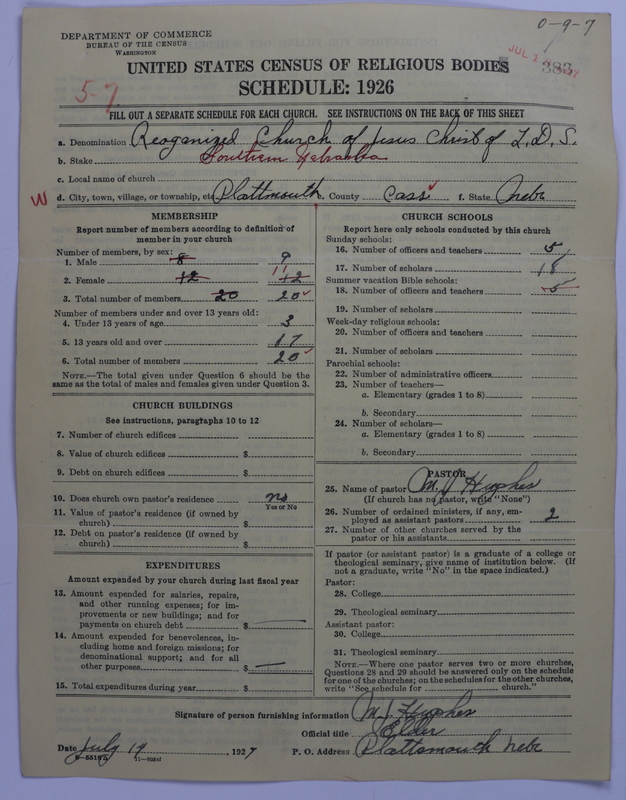 0-9-7
DEPARTMENT OF COMMERCE
BUREAU OF THE CENSUS
WASHINGTON
JUL
383
UNITED STATES CENSUS OF RELIGIOUS BODIES
SCHEDULE: 1926
5-7
FILL OUT A SEPARATE SCHEDULE FOR EACH CHURCH. SEE INSTRUCTIONS ON THE BACK OF THIS SHEET
a. Denomination Reoganized Church of Jesus Christ of L.D.S.
b. Stake Southern Nebraska
c. Local name of church
W d. City, town, village, or township, etc Plattmouth e. County Cass f. State Nebr
MEMBERSHIP
Report number of members according to definition of
member in your church
Number of members, by sex:
1. Male 8 9
2. Female 12 12 11
3. Total number of members 20 20
Number of members under and over 13 years old:
4. Under 13 years of age 3
5. 13 years old and over 17
6. Total number of members 20
NOTE.—The total given under Question 6 should be the
same as the total of males and females given under Question 3.
CHURCH BUILDINGS
See instructions, paragraphs 10 to 12
7. Number of church edifices
8. Value of church edifices $
9. Debt on church edifices $
10. Does church own pastor's residence no
Yes or No
11. Value of pastor's residence (if owned by
church) $
12. Debt on pastor's residence (if owned by
church) $
EXPENDITURES
Amount expended by your church during last fiscal year
13. Amount expended for salaries, repairs,
and other running expenses; for im-
provements or new buildings; and for
payments on church debt $ —
14. Amount expended for benevolences, in-
cluding home and foreign missions; for
denominational support; and for all
other purposes $ —
15. Total expenditures during year $
CHURCH SCHOOLS
Report here only schools conducted by this church
Sunday schools:
16. Number of officers and teachers 5
17. Number of scholars 18
Summer vacation Bible schools:
18. Number of officers and teachers 5
19. Number of scholars
Week-day religious schools:
20. Number of officers and teachers
21. Number of scholars
Parochial schools:
22. Number of administrative officers
23. Number of teachers—
a. Elementary (grades 1 to 8)
b. Secondary
24. Number of scholars—
a. Elementary (grades 1 to 8)
b. Secondary
PASTOR
25. Name of pastor M. J. Hughes
(If church has no pastor, write "None")
26. Number of ordained ministers, if any, em-
ployed as assistant pastors 2
27. Number of other churches served by the
pastor or his assistants
If pastor (or assistant pastor) is a graduate of a college or
theological seminary, give name of institution below. (If
not a graduate, write "No" in the space indicated.)
Pastor:
28. College
29. Theological seminary
Assistant pastor:
30. College
31. Theological seminary
NOTE.—Where one pastor serves two or more churches,
Questions 28 and 29 should be answered only on the schedule
for one of the churches; on the schedules for the other churches,
write "See schedule for church."
Signature of person furnishing information M. J. Hughes
Official title Elder
Date July 19, 1927 P. O. Address Plattsmouth Nebr